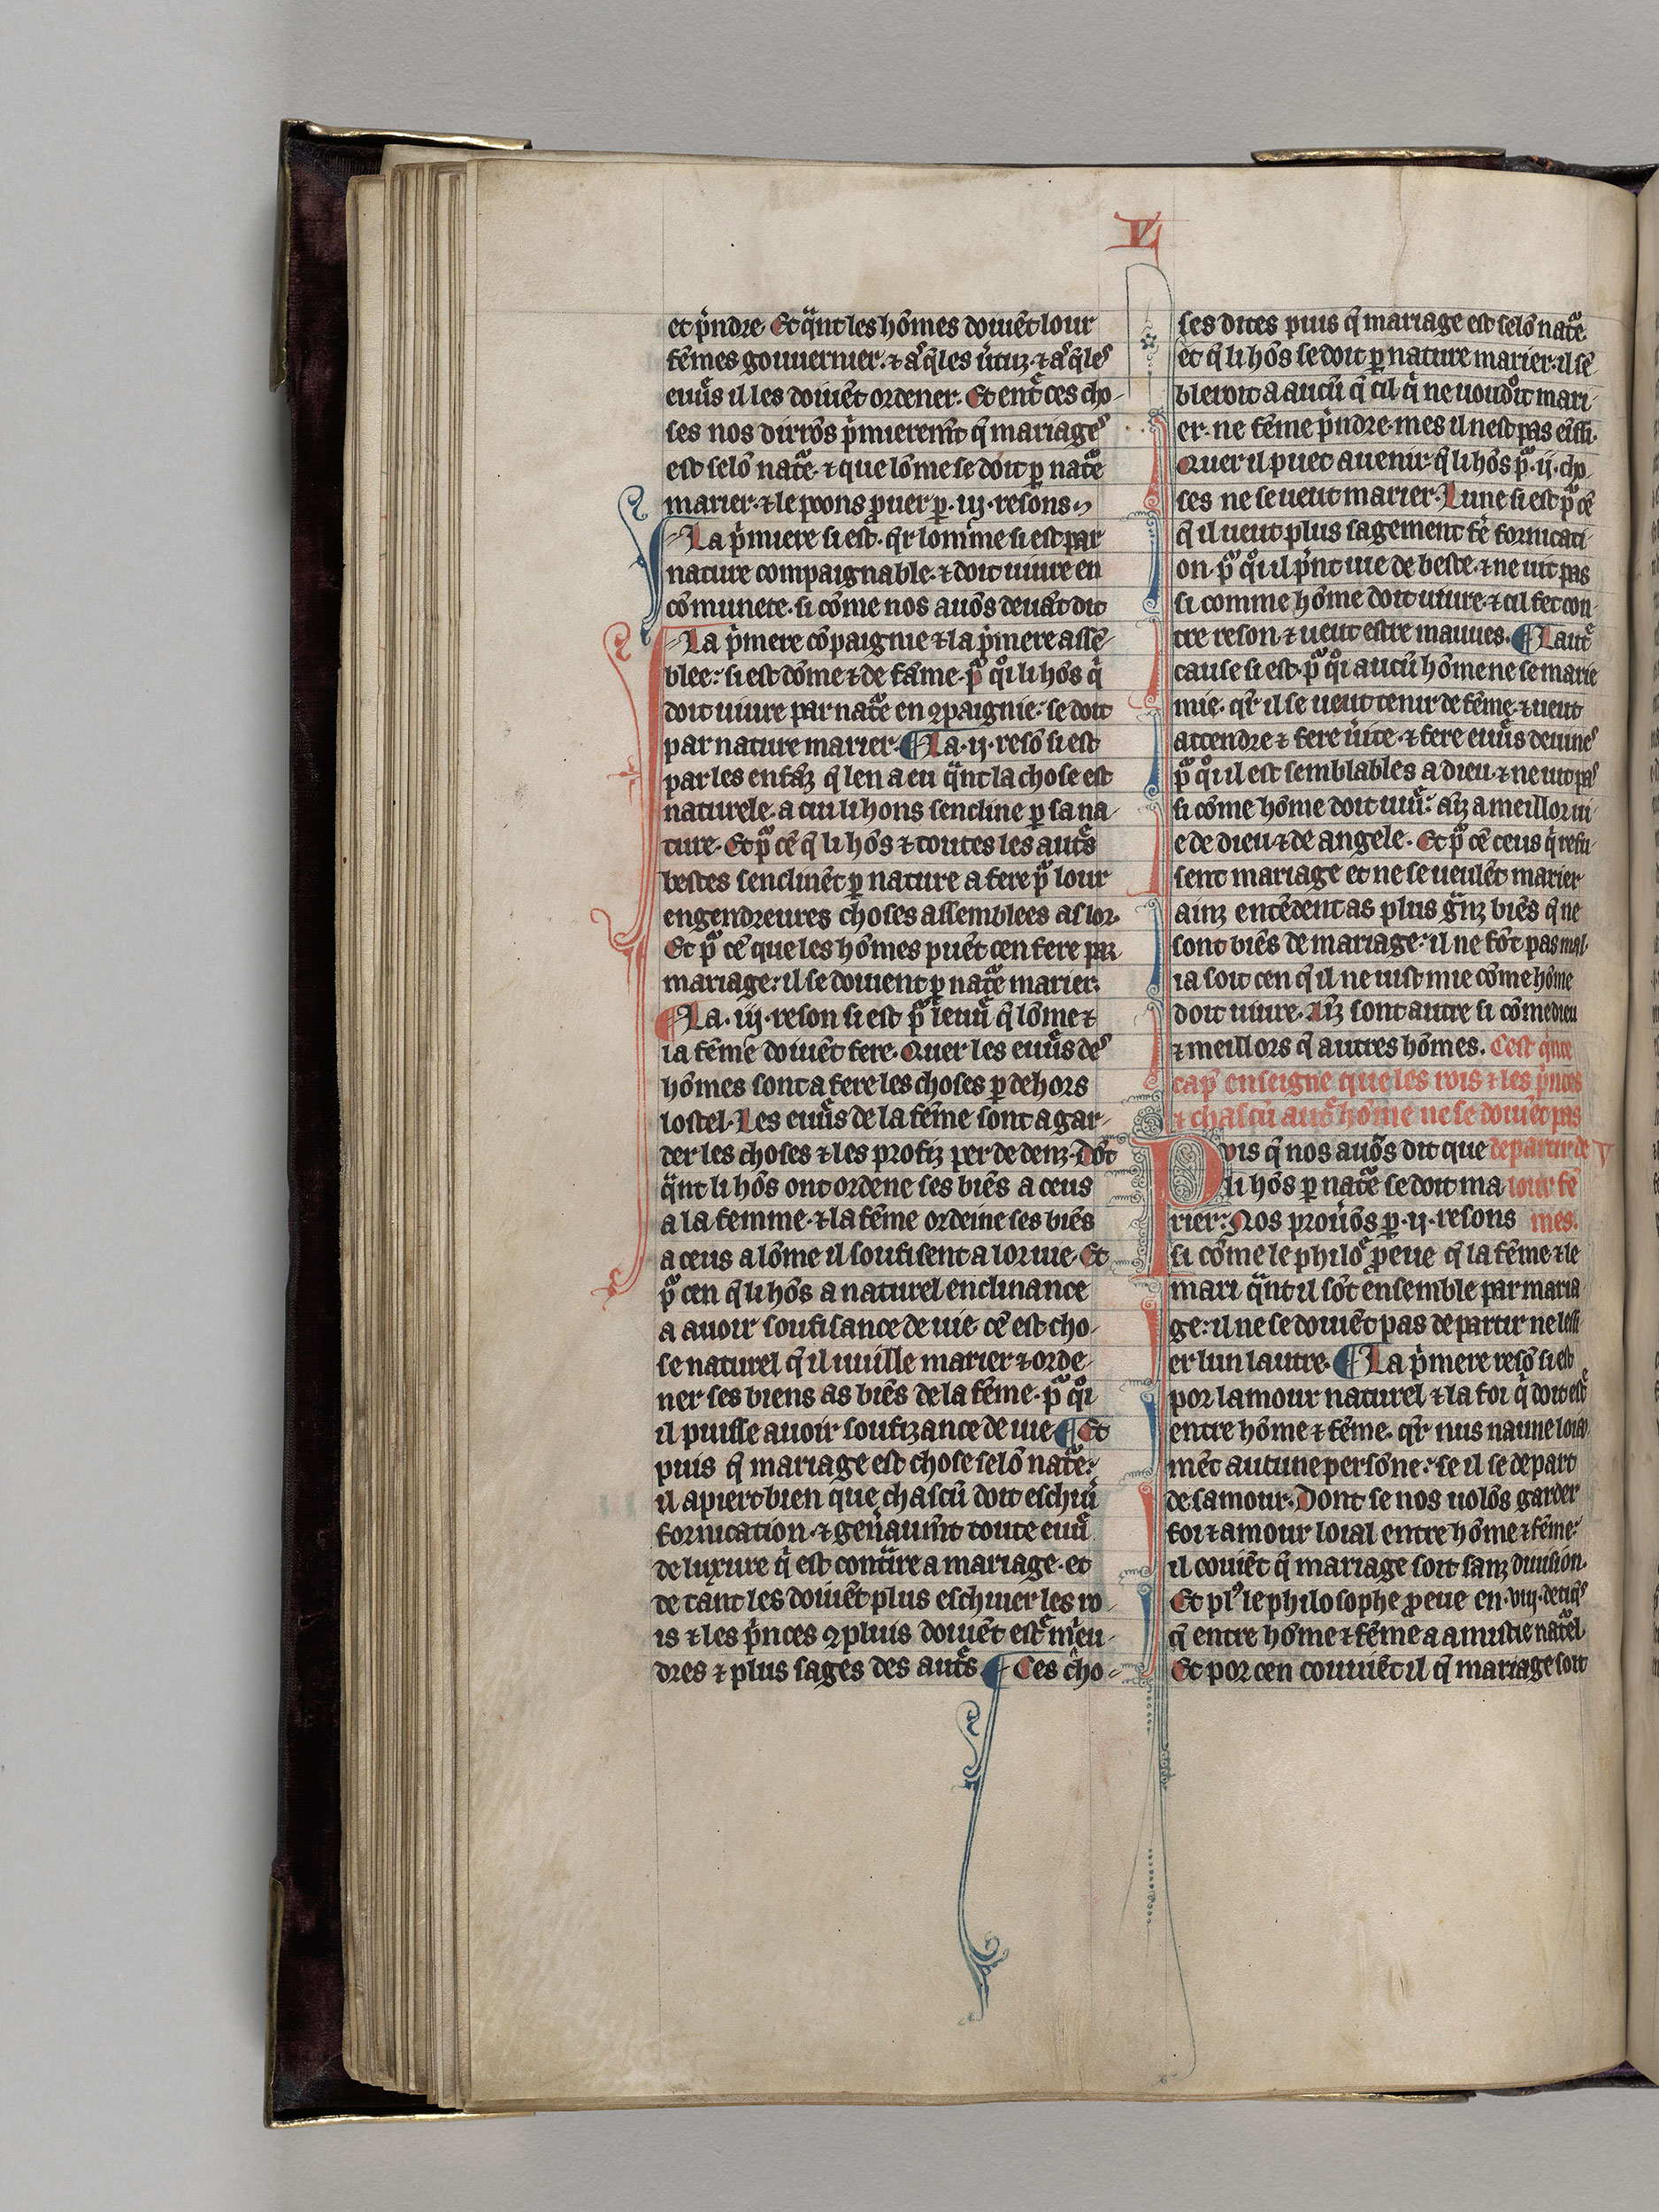 V
et p̾ndre. Et q̃nt les hõmes doiuẽt lour
fẽmes gouuerner. ⁊ a q̃les ũtuz. ⁊ a q̃les
euũs il les doiuẽt ordener. Et entˀ ces cho-
ses nos dirrõs p̾mieremẽt q̃ mariages
est selõ natˀe. ⁊ que lõme se doit ꝑ natˀe
marier. ⁊ le poons ꝓuer ꝑ .iij. resons
La p̾miere si est. qͥr lomme si est par
nature compaignable. ⁊ doit uiure en
cõmunete. si cõme nos auõs deuãt dit
La p̾mere cõpaignie ⁊ la p̾mere assẽ-
blee: si est dõme ⁊ de fãme. pͦ qͦi li hõs qͥ
doit uiure par natˀe en ꝯpaignie: se doit
par nature marier. ¶ La .ij. resõ si est
par les enfãz q̃ len a eu q̃nt la chose est
naturele. a cui li hons sencline ꝑ sa na-
ture. Et pͦ cẽ q̃ li hõs ⁊ toutes les autˀs
bestes senclinẽt ꝑ nature a fere pͦ lour
engendreures choses assemblees as lor.
Et pͦ cẽ que les hõmes puẽt cen fere par
mariage: il se doiuent ꝑ natˀe marier.
¶ La .iij. reson si est pͦ leuũ q̃ lõme ⁊
la fẽme doiuẽt fere. Quer les euũs des
hõmes sont a fere les choses ꝑ dehors
lostel. Les euũs de la fẽme sont a gar-
der les choses ⁊ les profiz per dedenz. Dõt
q̃nt li hõs ont ordene ses biẽs a ceus
a la femme. ⁊ la fẽme ordeine ses biẽs
a ceus a lõme il soufisent a lor uie. Et
pͦ cen q̃ li hõs a naturel enclinance
a auoir soufisance de uie. cẽ est cho-
se naturel q̃ il uuille marier ⁊ orde-
ner ses biens as biẽs de la fẽme. pͦ qͦi
il puisse auoir soufizance de uie. ¶ Et
puis q̃ mariage est chose selõ natˀe:
il apiert bien que chascũ doit eschiuˀ
fornication. ⁊ gen̾aumẽt toute euũ
de luxure qͥ est contˀire a mariage. et
de tant les doiuẽt plus eschiuer les ro-
is ⁊ les p̾nces ꝯ pluis doiuẽt estˀ m̾eu-
dres ⁊ plus sages des autˀs. ¶ Ces cho-
ses dites puis q̃ mariage est selõ natˀe
et q̃ li hõs se doit ꝑ nature marier: il sẽ-
bleroit a aucũ q̃ cil qͥ ne uoudͦit mari-
er. ne fẽme p̾ndre. mes il nest pas eĩssi.
Quer il puet auenir q̃ li hõs pͦ .ij. cho-
ses ne se ueut marier. Lune si est pͦ cẽ
q̃ il ueut plus sagement feˀ fornicati-
on. pͦ qͦi il p̾nt uie de beste. ⁊ ne uit pas
si comme hõme doit uiure. ⁊ cil fet con-
tre reson ⁊ ueut estre mauues. ¶ Lautˀ
cause si est. pͦ qͦi aucũ hõme ne se marie
mie. qͥr il se ueut tenir de fẽme. ⁊ ueut
attendre ⁊ fere ũite. ⁊ fere euũs deuines
pͦ qͦi il est semblables a dieu. ⁊ ne uit pas
si cõme hõme doit uiuˀ: aĩz a meillor ui-
e de dieu. ⁊ de angele. Et pͦ cẽ ceus qͥ refu-
sent mariage et ne se ueulẽt marier
ainz entẽdent as plus gˀnz biẽs q̃ ne
sont biẽs de mariage: il ne fõt pas mal.
ia soit cen q̃ il ne uist mie cõme hõme
doit uiure. Aĩz sont autre si cõme dieu
⁊ meillors q̃ autres hõmes. Cest qͥnte
cap̾ enseigne que les rois ⁊ les p̾nces
⁊ chascũ autˀ hõme ne se doiuẽt pas
departir de
lour fẽ
mes.
V
Puis q̃ nos auõs dit que
li hõs ꝑ natˀe se doit ma
rier: Nos prouõs ꝑ .ij. resons
si cõme le philoˀ ꝓeue q̃ la fẽme ⁊ le
mari q̃nt il sõt ensemble par maria-
ge: il ne se doiuẽt pas departir ne less-
er lun lautre. ¶ La p̾mere resõ si est
por lamour naturel ⁊ la foi qͥ doit estˀ
entre hõme ⁊ fẽme. qͥr nus naune loiau
mẽt autune persõne: se il se depart
de samour. Dont se nos uolõs garder
foi ⁊ amour loial entre hõme ⁊ fẽme:
il couiẽt q̃ mariage soit sanz diuision.
Et plꝰ le philosophe ꝓeue en .viij. detiqˀs
q̃ entre hõme ⁊ fẽme a amistie natˀel.
Et por cen couuiẽt il q̃ mariage soit